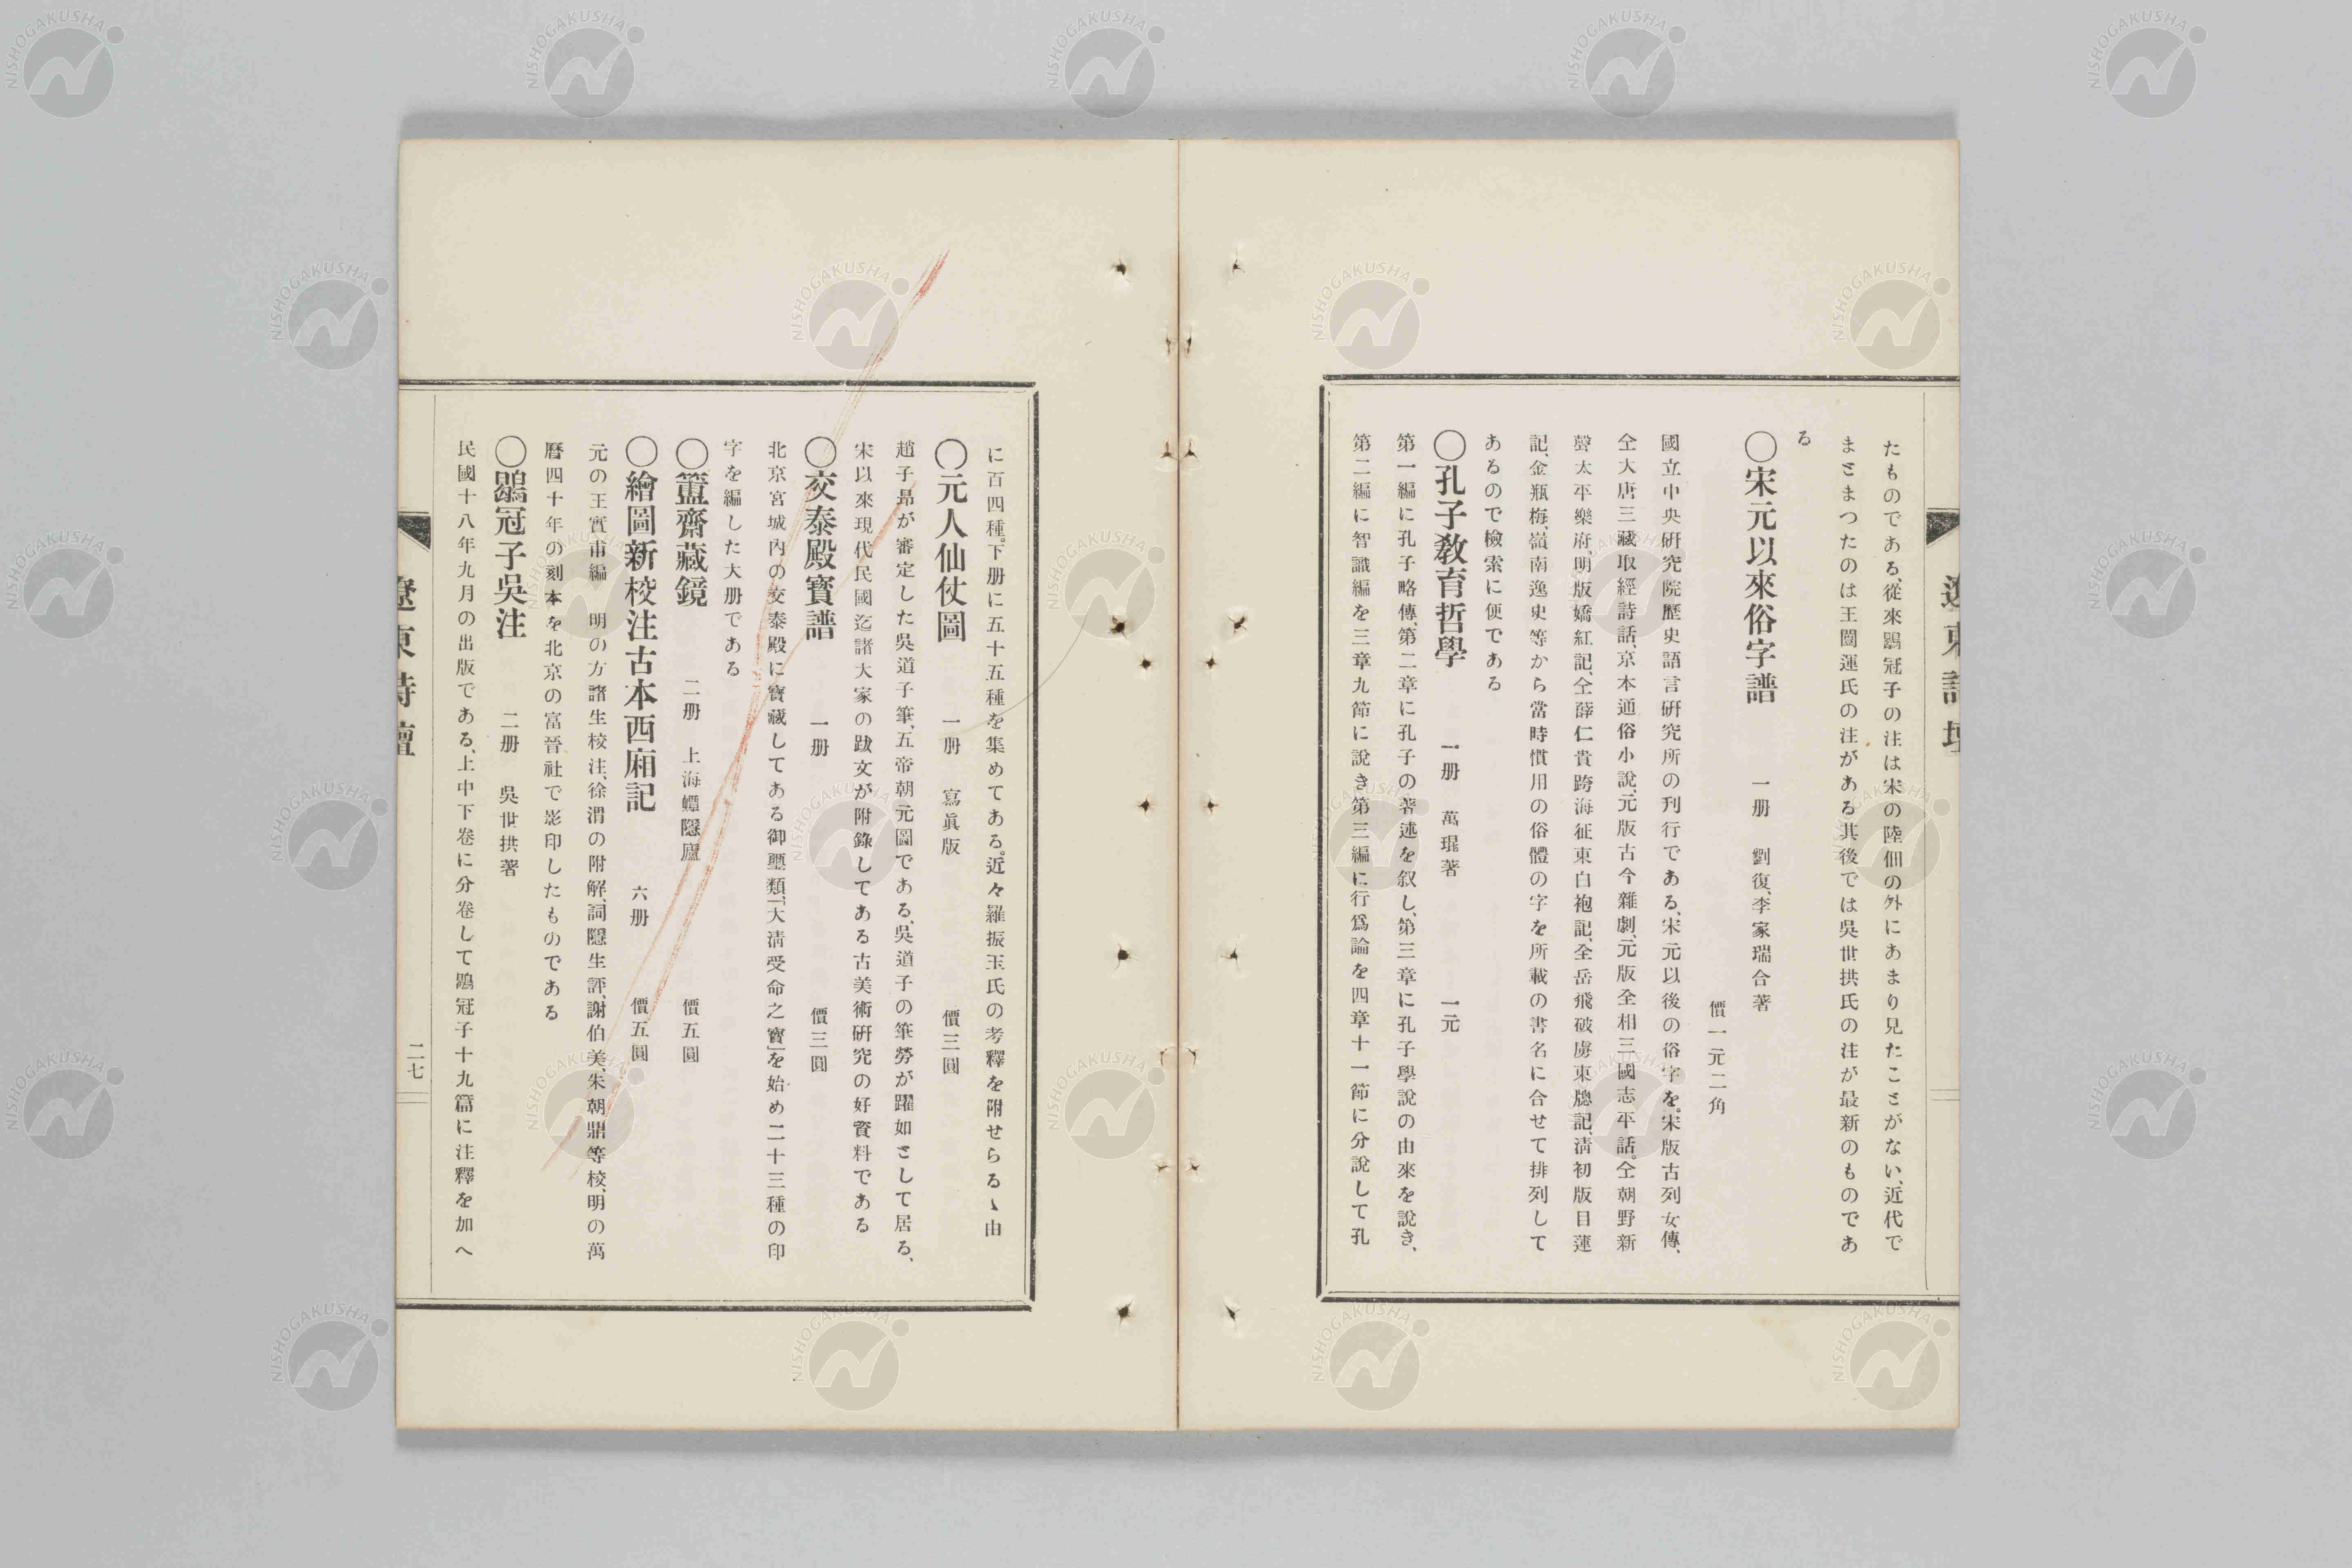 たものである、從來鶡冠子の注は宋の陸佃の外にあまり見たことがない、近代で
まとまつたのは王闓運氏の注がある其後では吳世拱氏の注が最新のものであ
る
〇宋元以來俗字譜 一册 劉復、李家瑞合著
價一元二角
國立中央硏究院歷史語言硏究所の刊行である、宋元以後の俗字を。宋版古列女傳、
仝大唐三藏取經詩話、京本通俗小說、元版古今雜劇、元版全相三國志平話。仝朝野新
聲太平樂府、明版嬌紅記、仝薛仁貴跨海征東白袍記、全岳飛破虜東牕記、淸初版目蓮
記、金瓶梅、嶺南逸史等から當時慣用の俗體の字を所載の書名に合せて排列して
あるので檢索に便である
〇孔子敎育哲學 一册 萬珵著 一元
第一編に孔子略傳、第二章に孔子の著述を叙し、第三章に孔子學說の由來を說き、
第二編に智識編を三章九節に說き第三編に行爲論を四章十一節に分說して孔
遼東詩壇
に百四種。下册に五十五種を集めてある。近々羅振玉氏の考釋を附せらるゝ由
〇元人仙仗圖 一册 寫眞版 價三圓
趙子昻が審定した吳道子筆、五帝朝元圖である、吳道子の筆勞が躍如として居る、
宋以來現代民國迄諸大家の跋文が附錄してある古美術硏究の好資料である
〇交泰殿寶譜 一册 價三圓
北京宮城內の交泰殿に寶藏してある御璽類、「大淸受命之寶」を始め二十三種の印
字を編した大册である
〇簠齋藏鏡 二册 上海蟫隱廬 價五圓
〇繪圖新校注古本西廂記 六册 價五圓
元の王實甫編 明の方諸生校注、徐渭の附解、詞隱生評、謝伯美、朱朝鼎等校、明の萬
曆四十年の刻本を北京の富晉社で影印したものである
〇鶡冠子吳注 二册 吳世拱著
民國十八年九月の出版である、上中下卷に分卷して鶡冠子十九篇に注釋を加へ
遼東詩壇
二七
NISHOGAKUSHA